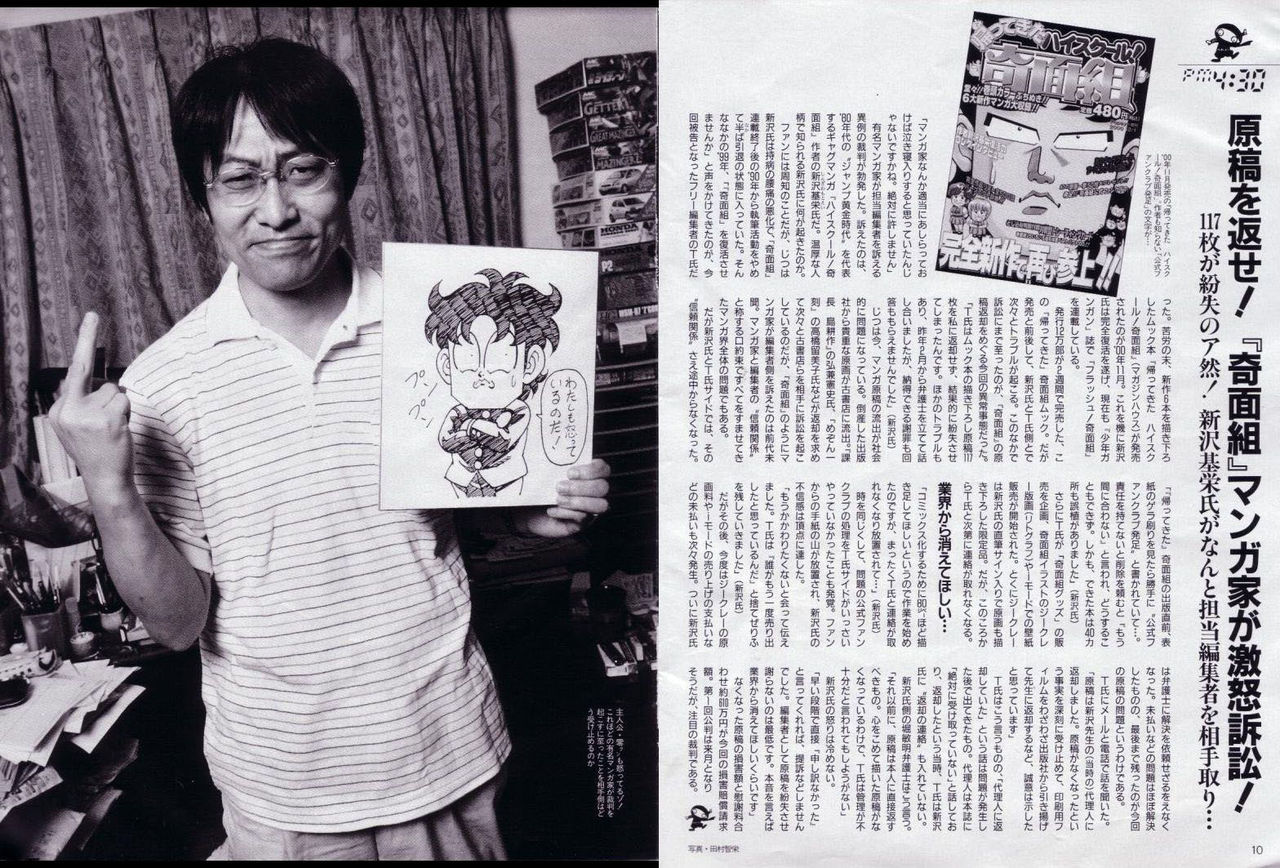 PM4:30
原稿を返せ!『奇面組』マンガ家が激怒訴訟!
117枚が紛失のア然! 新沢基栄氏がなんと担当編集者を相手取り…
帰ってきたハイスクール!
奇面組
6大新作マンガ大収録!!
480円
完全新作で再び参上!!
'00年11月発売の『帰ってきた ハイスク
ール!奇面組』。作者も知らない「公式フ
ァンクラブ発足」の文字が…
「マンガ家なんか適当にあしらってお
けば泣き寝入りすると思っていたんじ
ゃないですかね。絶対に許しません」
有名マンガ家が担当編集者を訴える
異例の裁判が勃発した。訴えたのは、
'80年代の“ジャンプ黄金時代”を代表
するギャグマンガ『ハイスクール!奇
面組』作者の新沢基栄氏だ。温厚な人
柄で知られる新沢氏に何が起きたのか。
ファンには周知のことだが、じつは
新沢氏は持病の腰痛の悪化で、『奇面組』
連載終了後の'90年から執筆活動をやめ
て半ば引退の状態に入っていた。そん
ななかの'99年、「『奇面組』を復活させ
ませんか」と声をかけてきたのが、今
回被告となったフリー編集者のT氏だ
った。苦労の末、新作6本を描き下ろ
したムック本『帰ってきた ハイスク
ール!奇面組』(マガジンハウス)が発売
されたのが'00年11月。これを機に新沢
氏は完全復活を遂げ、現在も『少年ガ
ンガン』誌で『フラッシュ!奇面組』
を連載している。
発行12万部が2週間で完売した、こ
の『帰ってきた』奇面組ムック。だが
発売と前後して、新沢氏とT氏側とで
次々とトラブルが起こる。このなかで
訴訟にまで至ったのが、『奇面組』の原
稿返却をめぐる今回の異常事態だった。
「T氏はムック本の描き下ろし原稿117
枚を私に返却せず、結果的に紛失させ
てしまったんです。ほかのトラブルも
あり、昨年2月から弁護士を立てて話
し合いましたが、納得できる謝罪も回
答ももらえませんでした」(新沢氏)
じつは今、マンガ原稿の流出が社会
的に問題になっている。倒産した出版
社から貴重な原画が古書店に流出。『課
長 島耕作』の弘兼憲史氏、『めぞん一
刻』の高橋留美子氏などが返却を求め
て次々と古書店らを相手に訴訟を起こ
しているのだが、『奇面組』のようにマ
ンガ家が編集者側を訴えたのは前代未
聞。マンガ家と編集者の“信頼関係”
と称する口約束ですべてをすませてき
たマンガ界全体の問題でもある。
だが新沢氏とT氏サイドでは、その
“信頼関係”さえ途中からなくなった。
「『帰ってきた』奇面組の出版直前、表
紙のゲラ刷りを見たら勝手に『公式フ
ァンクラブ発足』と書かれていて…。
責任を持てないと削除を頼むと『もう
間に合わない』と言われ、どうするこ
ともできず。しかも、できた本は40カ
所も誤植がありました」(新沢氏)
さらにT氏が『奇面組グッズ』の販
売を企画、奇面組イラストのジークレ
ー版画(リトグラフ)やiモードでの壁紙
販売が開始された。とくにジークレー
は新沢氏の直筆サイン入りで原画も描
き下ろした限定品。だが、このころか
らT氏と次第に連絡が取れなくなる。
業界から消えてほしい…
「コミックス化するために80㌻ほど描
き足してほしいというので作業を始め
たのですが、まったくT氏と連絡が取
れなくなり放置されて…」(新沢氏)
時を同じくして、問題の公式ファン
クラブの処理をT氏サイドがいっさい
やっていなかったことも発覚。ファン
からの手紙の山が放置され、新沢氏の
不信感は頂点に達した。
「もうかかわりたくないと会って伝え
ました。T氏は『誰がもう一度売り出
したと思っているんだ』と捨てぜりふ
を残していきました」(新沢氏)
だがその後、今度はジークレーの原
画料やiモードの売り上げの支払いな
どの未払いも次々発生。ついに新沢氏
は弁護士に解決を依頼せざるをえなく
なった。未払いなどの問題はほぼ解決
したものの、最後まで残ったのが今回
の原稿の問題というわけである。
T氏にメールと電話で話を聞いた。
「原稿は新沢先生の(当時の)代理人に
返却しました。原稿がなくなったとい
う事実を深刻に受け止めて、印刷用フ
ィルムをわざわざ出版社から引き揚げ
て先生に返却するなど、誠意は示した
と思っています」
T氏はこう言うものの、「代理人に返
却していた」という話は問題が発生し
た後で出てきたもの。代理人は本誌に
「絶対に受け取っていない」と話してお
り、返却したという当時、T氏は新沢
氏に“返却の連絡”も入れていない。
新沢氏側の堀敏明弁護士はこう言う。
「それ以前に、原稿はT氏が直接返す
べきもの。心をこめて描いた原稿がな
くなっているわけで、T氏は管理が不
十分だと言われてもしようがない」
新沢氏の怒りは冷めない。
「早い段階で直接『申し訳なかった』
と言ってくれれば、提訴などしません
でした。編集者として原稿を紛失させ
謝らないのは最低です。本音を言えば
業界から消えてほしいくらいです」
なくなった原稿の損害額と慰謝料合
わせ約800万円が今回の損害賠償請求
額。第1回公判は来月となり
そうだが、注目の裁判である。
わたしも怒って
いるのだ!
プンプン
主人公・零?も怒ってるゾ!
これほどの有名マンガ家が裁判を
起こすに至ったことを相手側はど
う受け止めるのか
GETTER
GREAT MAZINGER
MAZINGER Z
HONDA
P2
写真・田村智栄
10